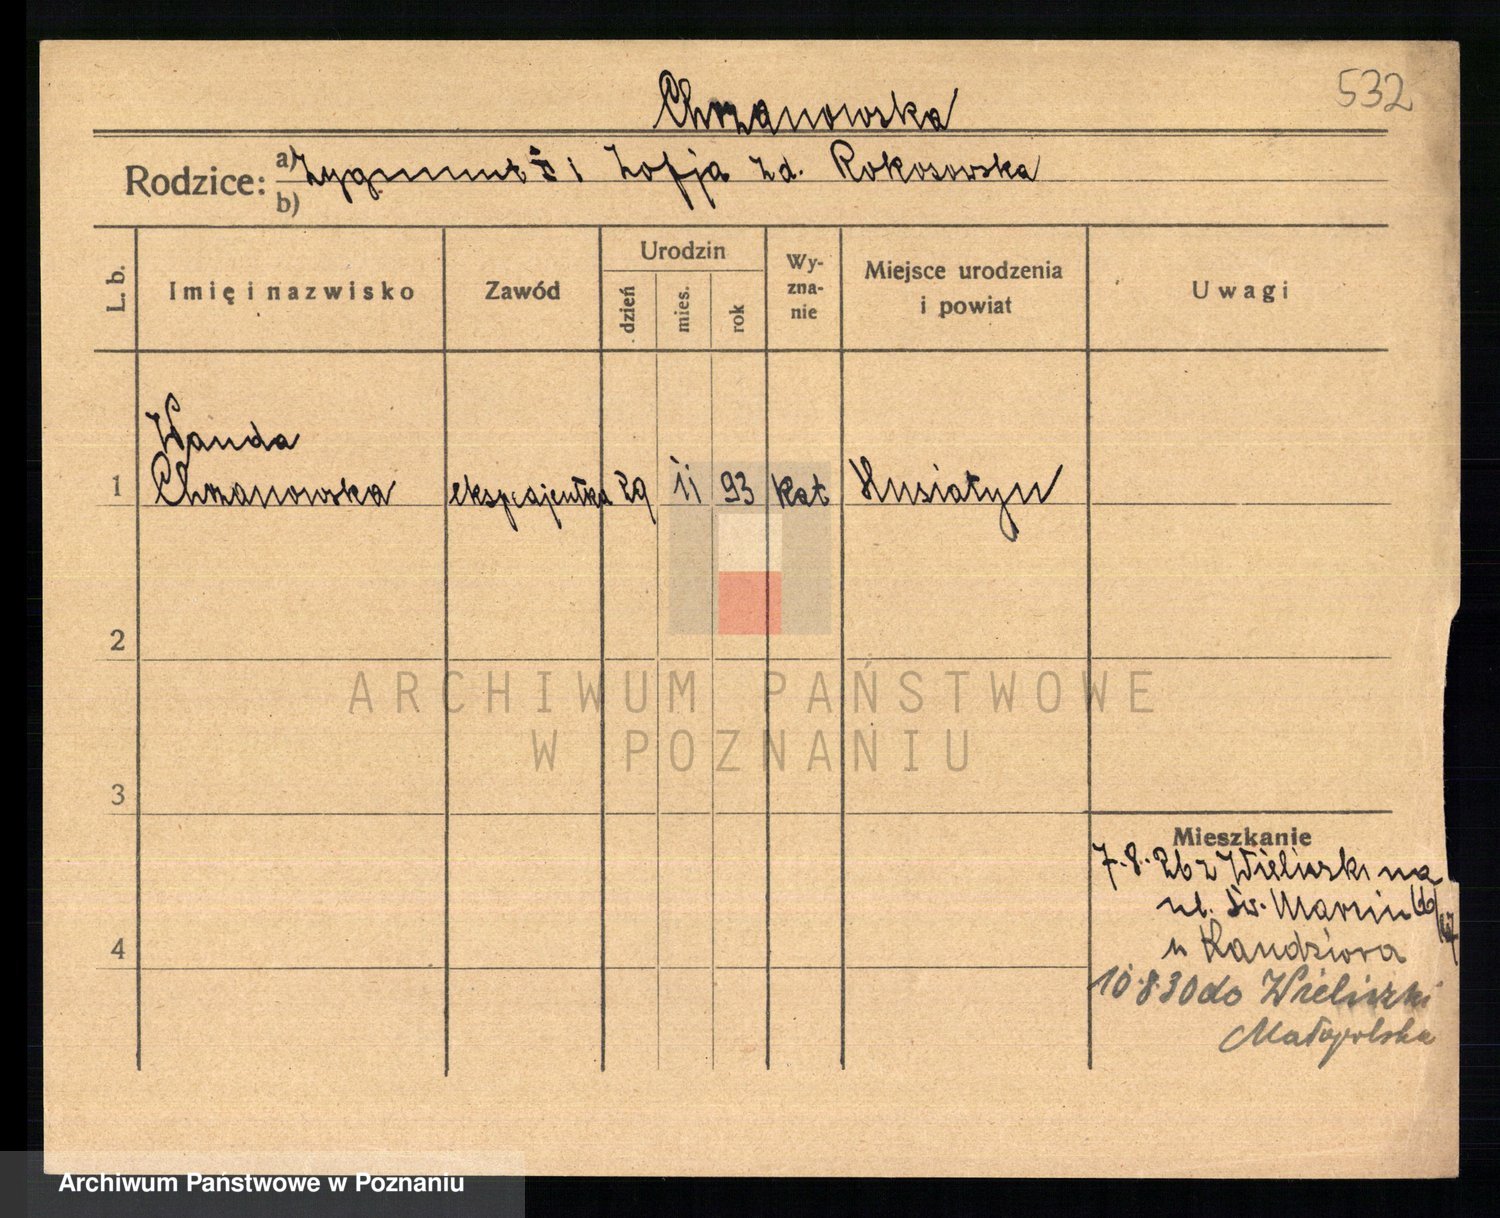 532
Chrzanowska
Rodzice: a) Zygmunt i Zofja z d. Rokosowska
b)
L. b. Imię i nazwisko Zawód Urodzin dzień mies. rok Wy-zna-nie Miejsce urodzenia i powiat Uwagi
Wanda
1 Chrzanowska ekspedjentka 29 11 93 kat Husiatyn
2
ARCHIWUM PAŃSTWOWE
W POZNANIU
3
Mieszkanie
7.8.26 z Wieliczki na
ul. Św. Marcin
u Kandziora
4
10.8.30 do Wieliczki
Małopolska
Archiwum Państwowe w Poznaniu